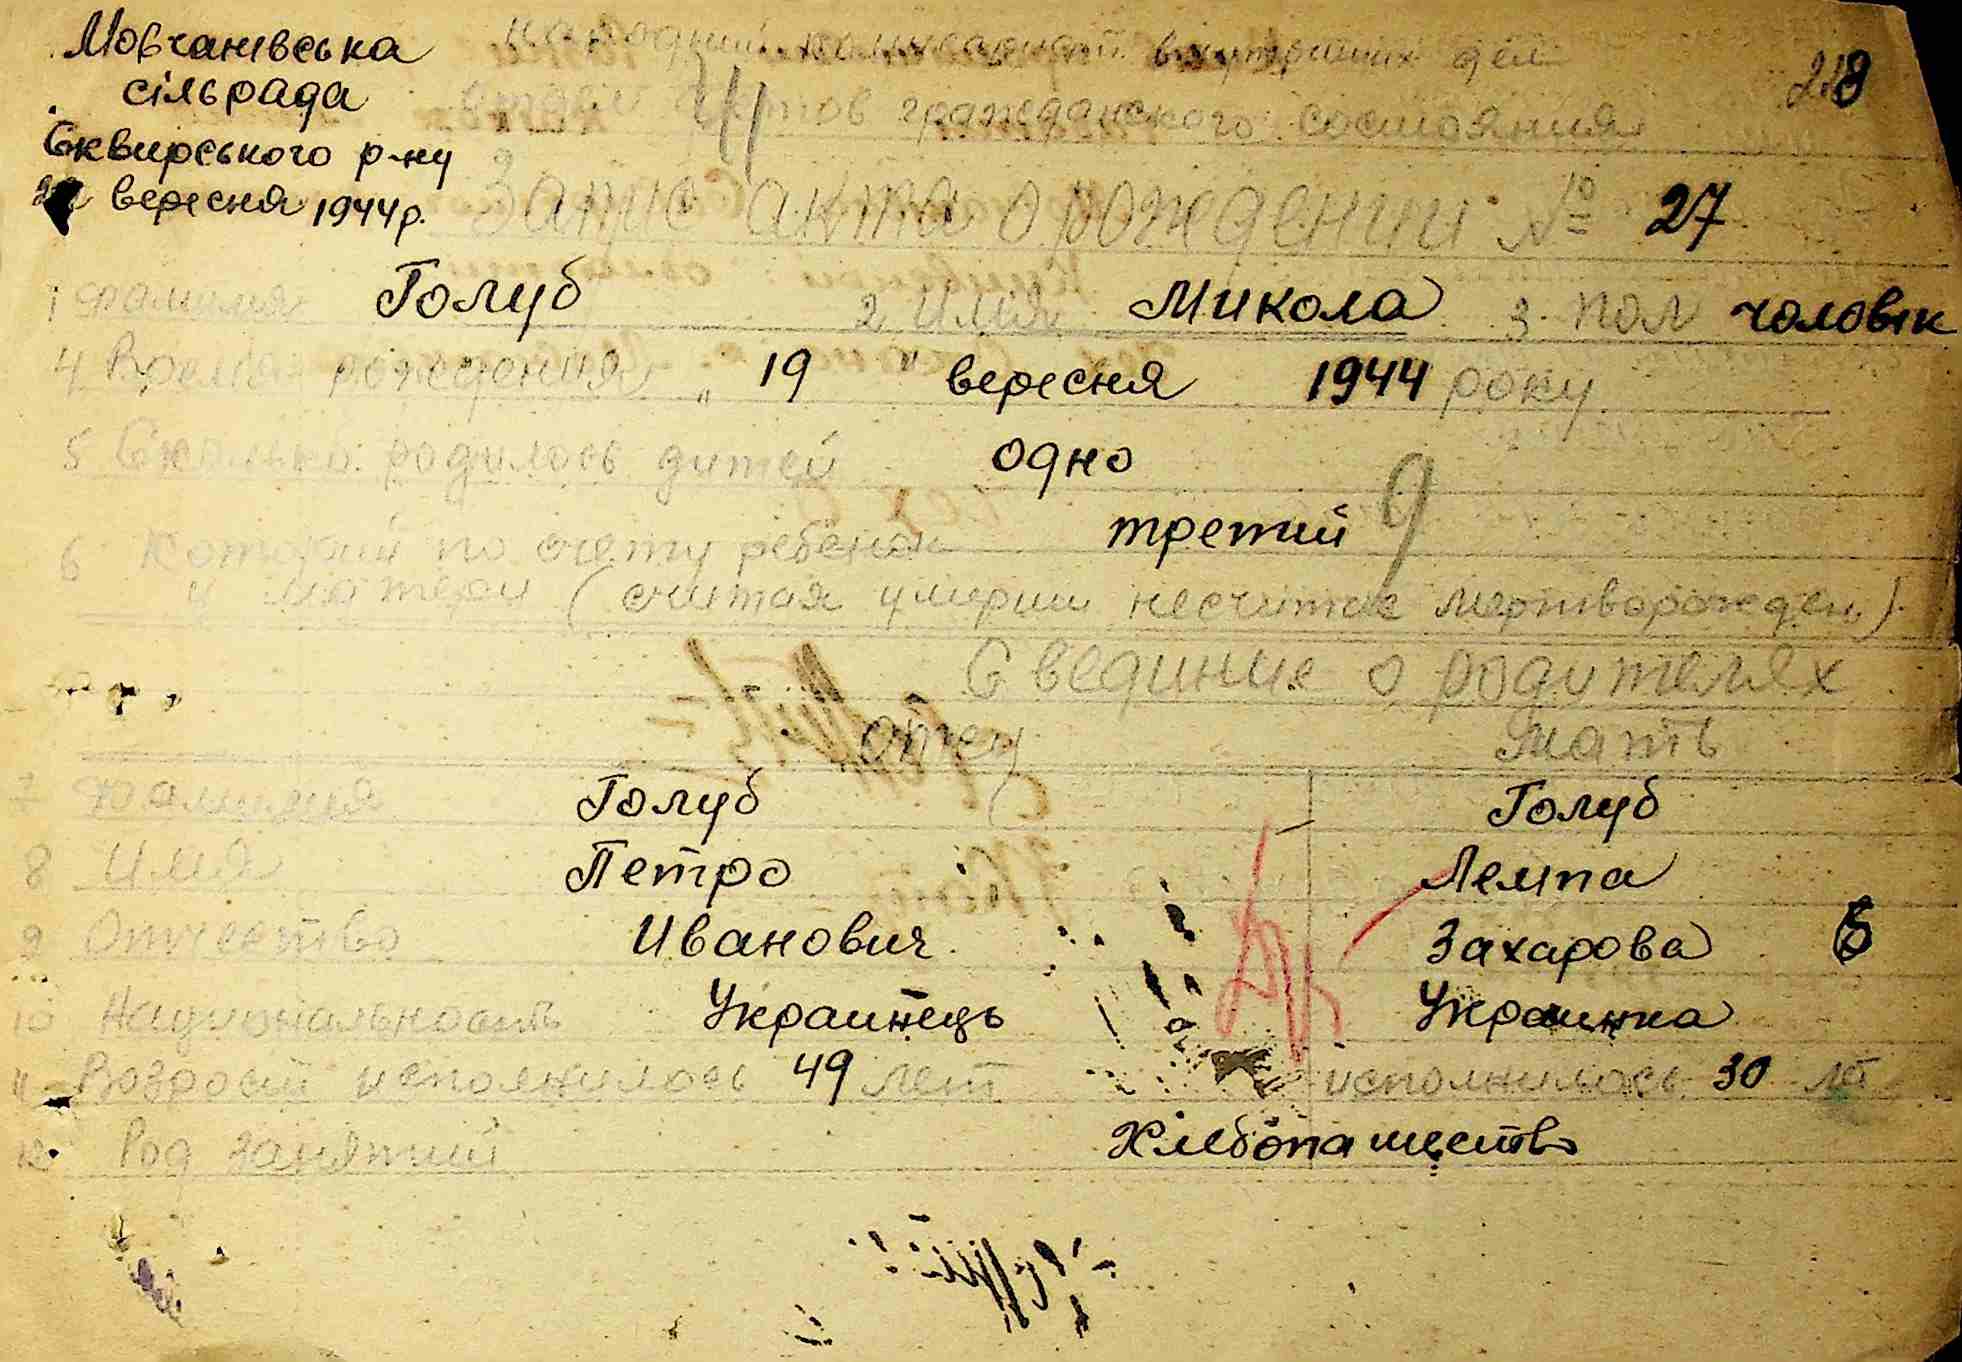 Мовчанівська
сільрада
Сквирського р-ну
вересня 1944 р.
народный комиссариат внутрених дел
218
актов гражданского состояния
Запис акта о рождении № 27
1 Фамилия Голуб 2 Имя Микола 3. пол чоловік
4 Время рождения „ 19 " вересня 1944 року
5 Сколько родилось дитей одно
6 Который по счету ребенок третий
у матери (считая умерши несчитая мертворожден)
Свединие о родителях
отец мать
7 Фамилия Голуб Голуб
8 Имя Петро Лемпа
9 Отчество Иванович Захарова
10 Национальность Украинець Украинка
11 Возраст исполнилось 49 лет исполнилось 30 лет
12 Род занятий Хлебопашеств